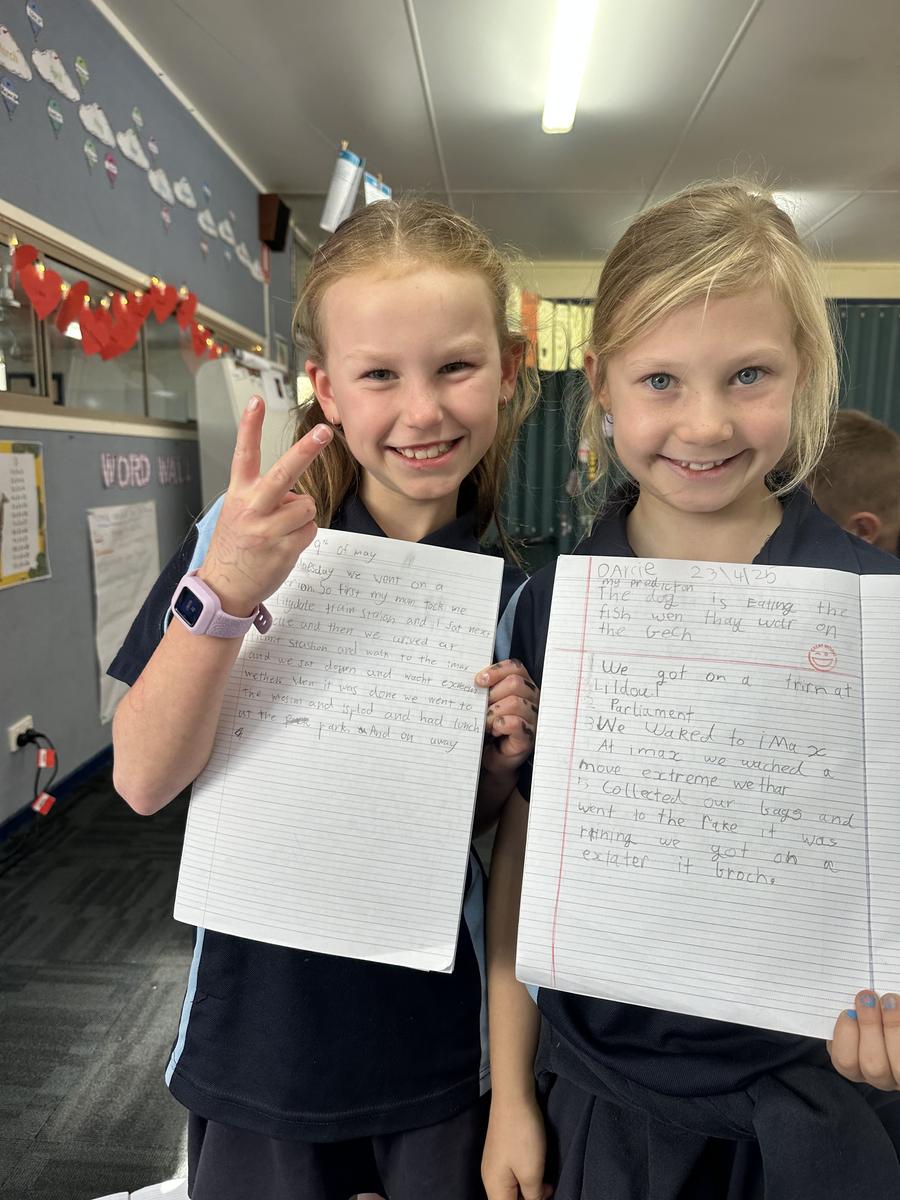 WORD WALL
9th of may
we went on a
So first my mum took me
train station and I sat next
and then we arived at
stashon and walk to the imax
and we sat down and wacht
wethers Wen it was done we went to
the and had lunch
at the park. And on away
Darcie 23\4/25
my prediction
The dog is Eating the
fish wen thay wotr on
the
We got on a trirn at
Lildout
Parliament
We Waked to iMax
At imax we wached a
move extreme wethar
Collected our bags and
went to the Pake it was
raning we got on a
exlater it broch.